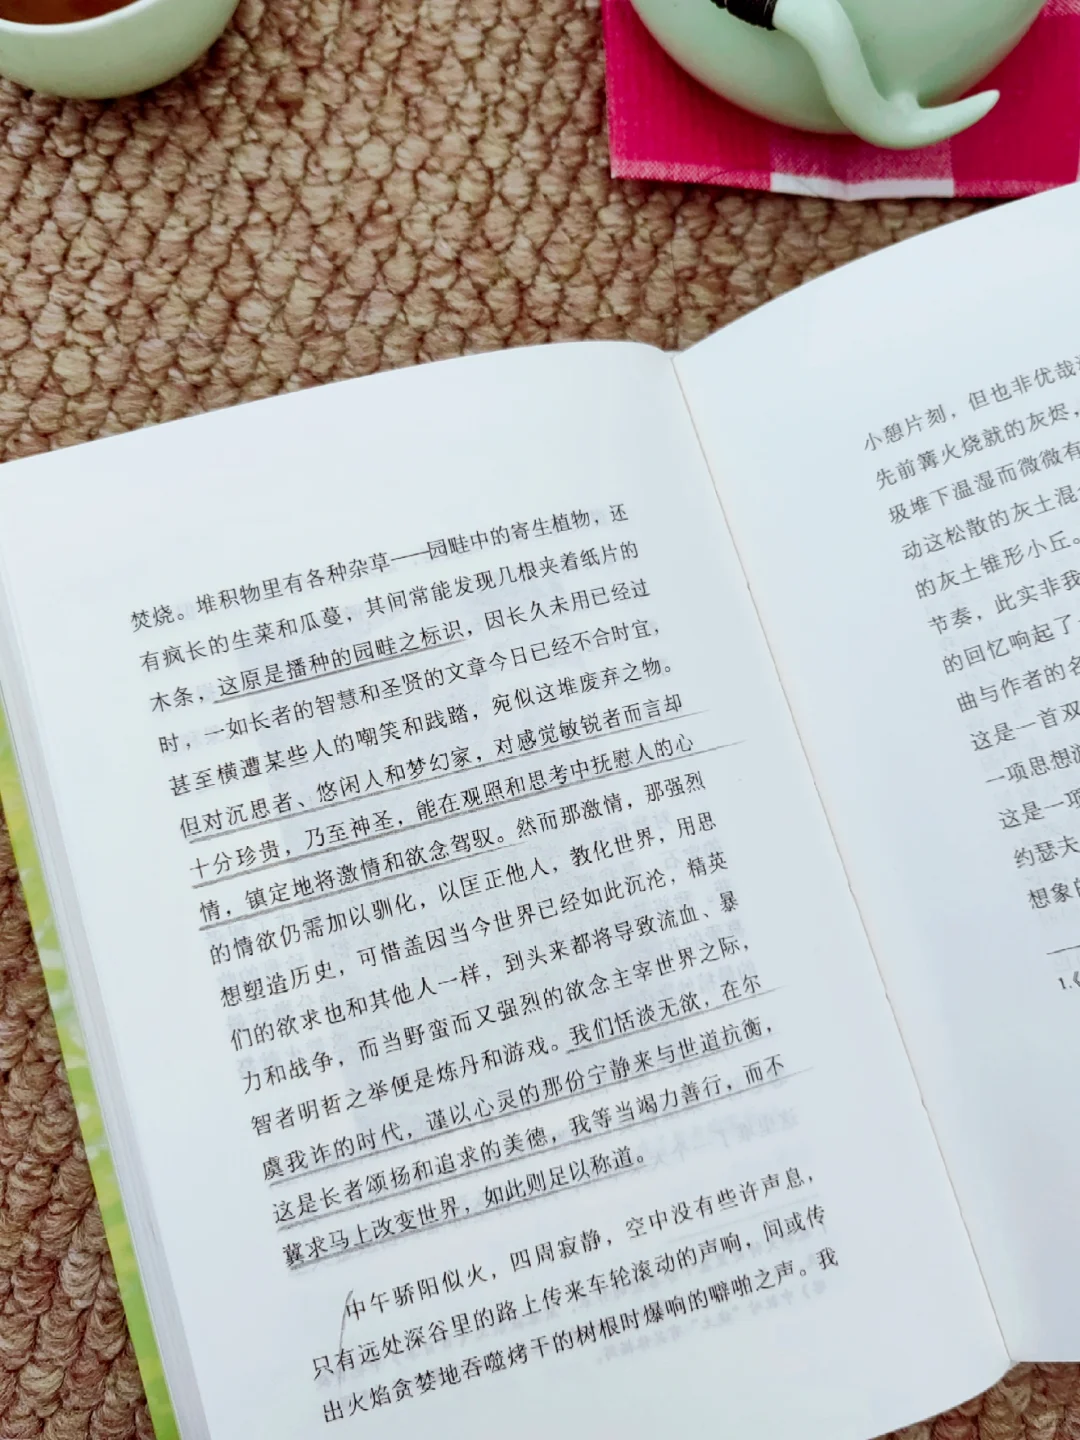 焚烧。堆积物里有各种杂草——园畦中的寄生植物，还
有疯长的生菜和瓜蔓，其间常能发现几根夹着纸片的
木条，这原是播种的园畦之标识，因长久未用已经过
时，一如长者的智慧和圣贤的文章今日已经不合时宜，
甚至横遭某些人的嘲笑和践踏，宛似这堆废弃之物。
但对沉思者、悠闲人和梦幻家，对感觉敏锐者而言却
十分珍贵，乃至神圣，能在观照和思考中抚慰人的心
情，镇定地将激情和欲念驾驭。然而那激情，那强烈
的情欲仍需加以驯化，以匡正他人，教化世界，用思
想塑造历史，可惜盖因当今世界已经如此沉沦，精英
们的欲求也和其他人一样，到头来都将导致流血、暴
力和战争，而当野蛮而又强烈的欲念主宰世界之际，
智者明哲之举便是炼丹和游戏。我们恬淡无欲，在尔
虞我诈的时代，谨以心灵的那份宁静来与世道抗衡，
这是长者颂扬和追求的美德，我等当竭力善行，而不
冀求马上改变世界，如此则足以称道。
中午骄阳似火，四周寂静，空中没有些许声息，
只有远处深谷里的路上传来车轮滚动的声响，间或传
出火焰贪婪地吞噬烤干的树根时爆响的噼啪之声。我
小憩片刻，但也非优哉
先前篝火烧就的灰烬，
圾堆下温湿而微微有
动这松散的灰土混
的灰土锥形小丘。
节奏，此实非我
的回忆响起了
曲与作者的名
这是一首双
一项思想
这是一项
约瑟夫
想象的
1.《